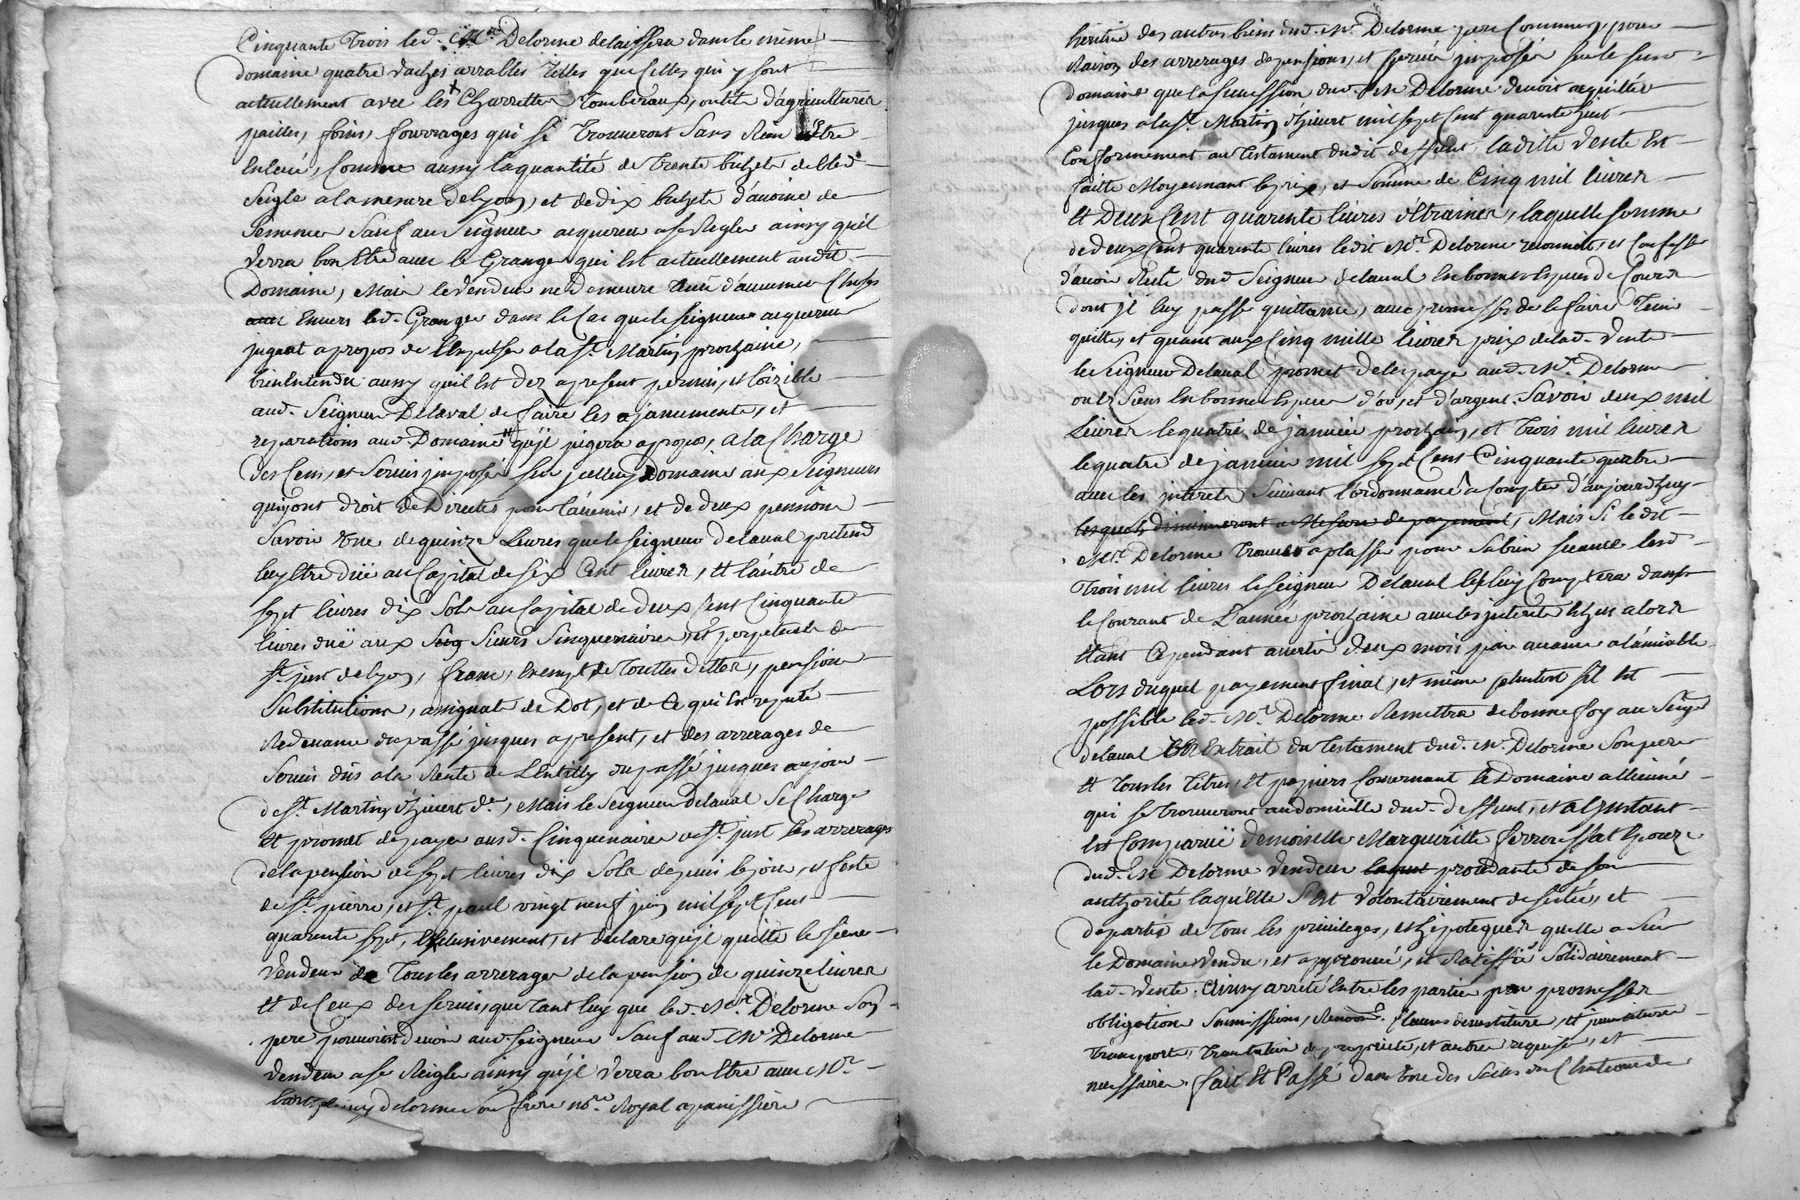 Cinquante trois led. Mre Delorme delaissera dans le même
domaine quatre vaches arrables telles que celles qui y sont
actuellement avec les charrettes tombereaux, outils d'agricultures
pailles, foins, fourrages qui se trouveront sans rien être
enlevé, comme aussy la quantité de trente bichets de bled
seigle a la mesure de lyon, et de dix bichets d'avoine de
semence sauf au seigneur acquereur a se regler ainsy qu'il
verra bon être avec le granger qui est actuellement audit
Domaine, Mais le vendeur ne demeure tenu d'aucunes choses
envers led. Granger dans le cas que le seigneur acquereur
jugeat apropos de l'expulser a la St. Martin prochaine,
bien entendu aussy qu'il est dez apresent permis, et loizible
aud. Seigneur Delaval de faire les ajancements, et
reparations aud Domaine qu'il jugera apropos, a la charge
des cens, et servis imposés sur icelluy Domaine aux seigneurs
qui ont droit de Directes pour l'avenir, et de deux pensions
savoir une de quinze Livres que le seigneur delaval pretend
luy être düe au capital de six cent livres, et l'autre de
sept livres dix sols au capital de deux cent cinquante
livres düe aux sieurs sinquenaires, et perpetuels de
St. just de lyon, franc, exempt de touttes dettes, pension
substitutions, assignats de Dot, et de ce qui est reputé
redevance du passé jusques apresent, et des arrerages de
servis dûs a la Rente de Lentilly du passé jusques au jour
de St. Martin d'hivert de., Mais le seigneur Delaval se charge
et promet de payer ausd. Cinquenaires de St. just les arrerages
de la pension de sept livres dix sols depuis le jour, et feste
de St. pierre, et St. paul vingt neuf juin mil sept cent
quarente sept, exclusivement, et declare qu'il quitte le sieur
vendeur de tous les arrerages de la pension de quinze livres
et de ceux des servis, que tant luy que led. Mre. Delorme son
pere pouvoient devoir aud seigneur sauf aud. Mre Delorme
vendeur a se reigler ainsy qu'il verra bon être avec Mre.
delorme son frere nore. Royal
héritier des autres biens dud. Mr. Delorme pere commun, pour
raison des arrerages de pensions, et servis imposés sur le susd
domaine que la succession dud. Mr Delorme devoit acquittée
jusques a la St. Martin d'hivert mil sept cent quarente huit
conformement au testament dudit deffunt, laditte vente est
faitte moyennant le prix, et somme de cinq mil livres
et deux cent quarente livres d'étraines, laquelle somme
de deux cent quarente livres ledit Mre. Delorme reconnoit, et confesse
d'avoir reçu dud Seigneur delaval en bonnes espèces de cours
dont il luy passe quittance, avec promesse de le faire tenir
quitte, et quant aux cinq mille livres prix de lad. vente
le seigneur Delaval promet de les payer aud. Mre. Delorme
ou es siens en bonnes especes d'or, et d'argent. savoir deux mil
livres le quatre de janvier prochain, et trois mil livres
le quatre de janvier mil sept cent cinquante quatre
avec les interets suivant l'ordonnance a compter d'aujourd'huy
lesquels diminueront a Mesure de payement, Mais si ledit
Mre. Delorme trouve a plasser pour subir sceance lesd.
trois mil livres le seigneur Delaval les luy comptera dans
le courant de L'année prochaine avec les interets echus alors
étant cependant averti deux mois par avance a l'amiable
Lors duquel payement final, et même plutost s'il est
possible led. Mr. Delorme remettra de bonne foy au Seigr
delaval un extrait du testament dud. Mr. Delorme son pere
et tous les titres, et papiers concernant le Domaine allienné
qui se trouveront au domicille dud. deffunt, et a l'instant
est comparüe demoiselle Margueritte ferroussat epouze
dud. Mr Delorme vendeur laquel procedante de son
authorité laquelle s'est volontairement desistée, et
departie de tous les privileges, et hipoteques quelle a sur
le Domaine vendu, et approuvé, et ratiffié solidairement
lad. vente. Ainsy arrêté entre les parties par promesses
obligations soumissions, renons. clauses devestiture, et
transports, translation de propriete, et autres requises, et
necessaires. fait et Passé dans une des salles du chateau de